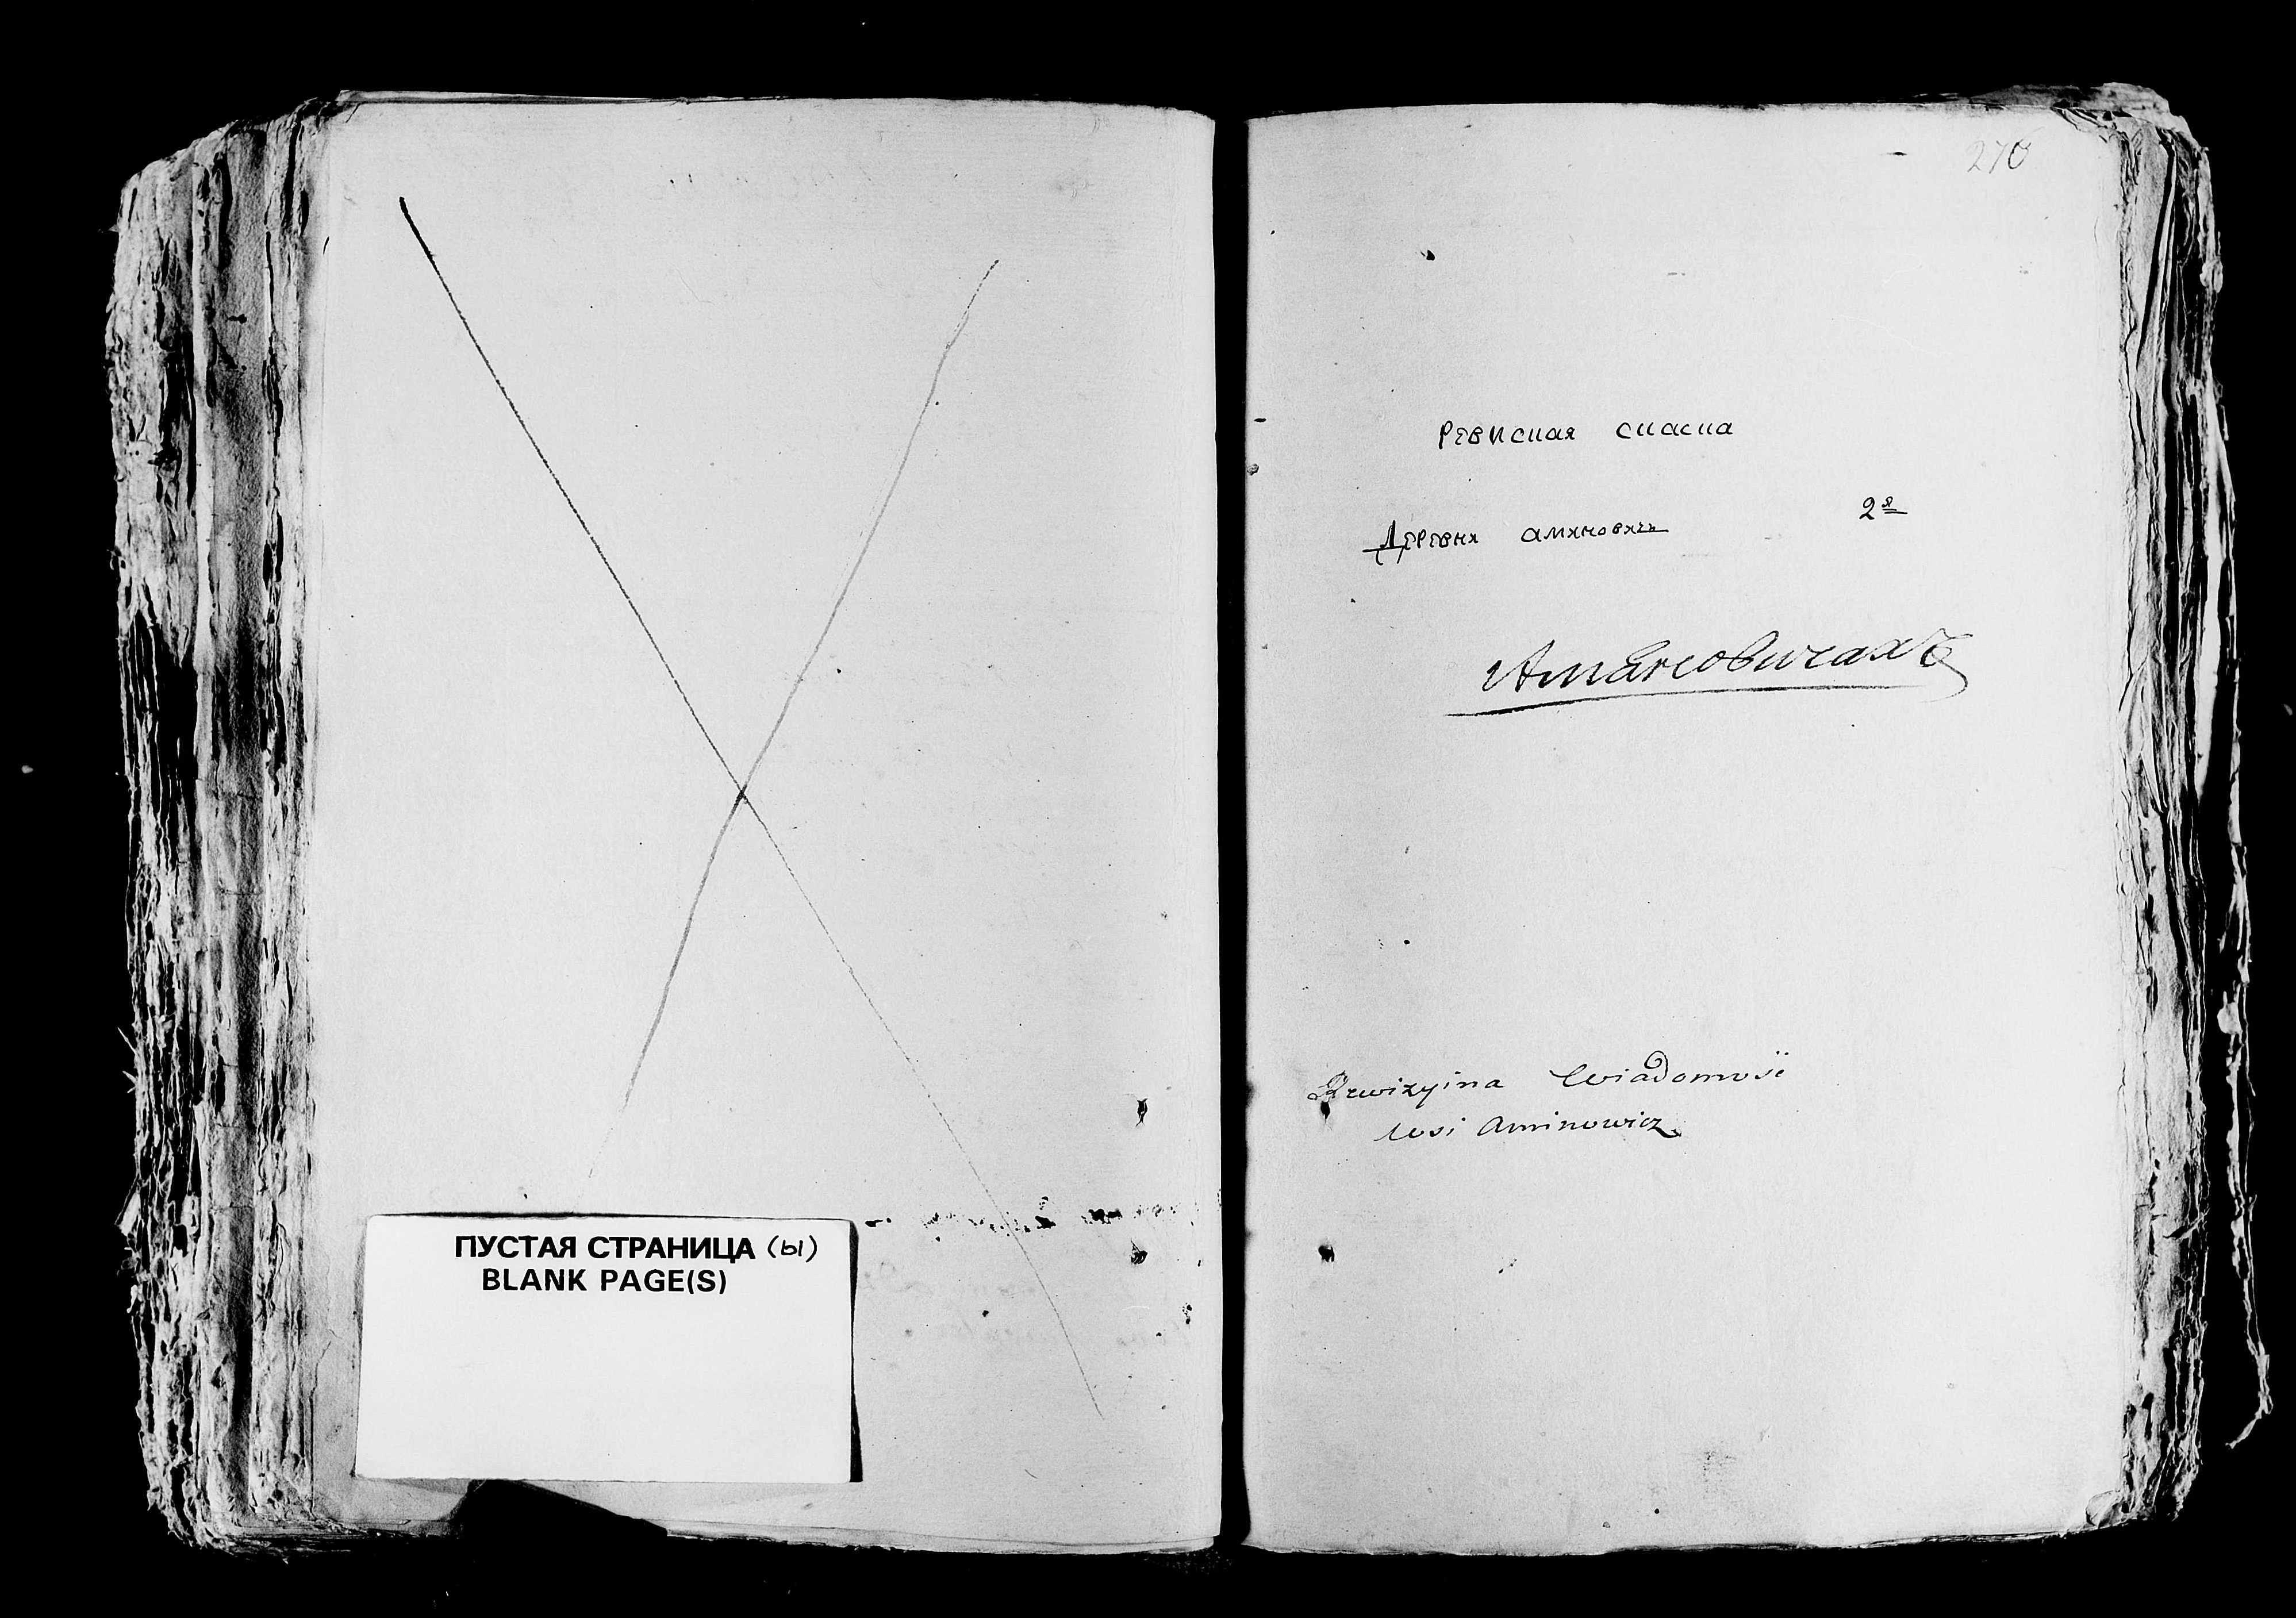 ПУСТАЯ СТРАНИЦА (ы)
BLANK PAGE(S)
276
Ревиская скаска
Деревня аминовичъ 2я
Аминовичахъ
Rewizyina Wiadomość
wsi Aminowicz